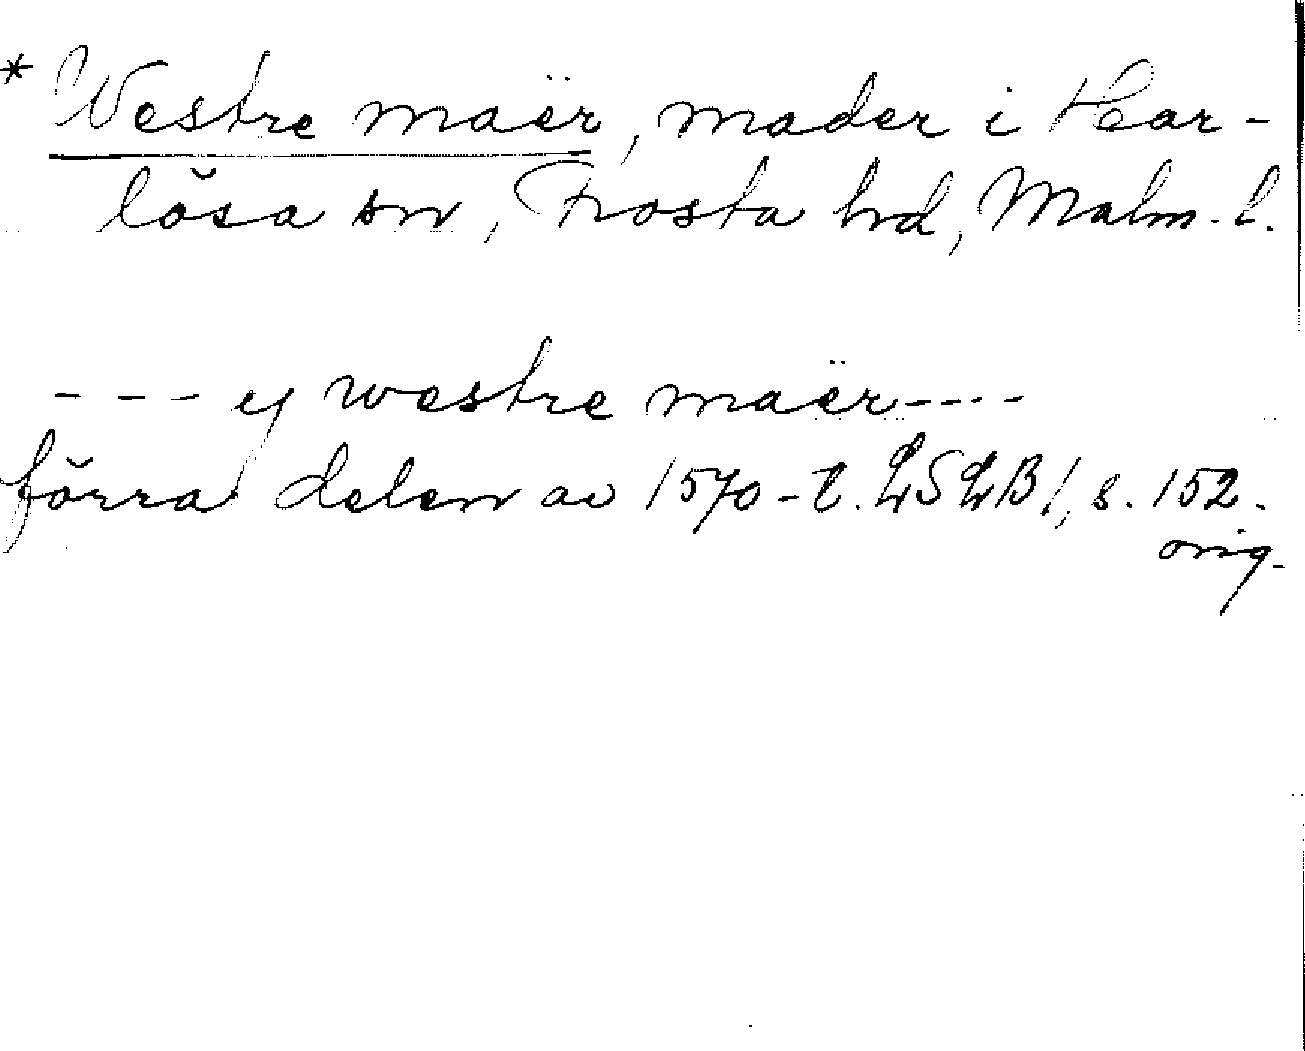 * Westre maër, mader i Har-
lösa sn, Frosta hd, Malm. l.
--- ij westre maër----
förra delen av 1570-t. LSLB 1, s. 152.
orig.